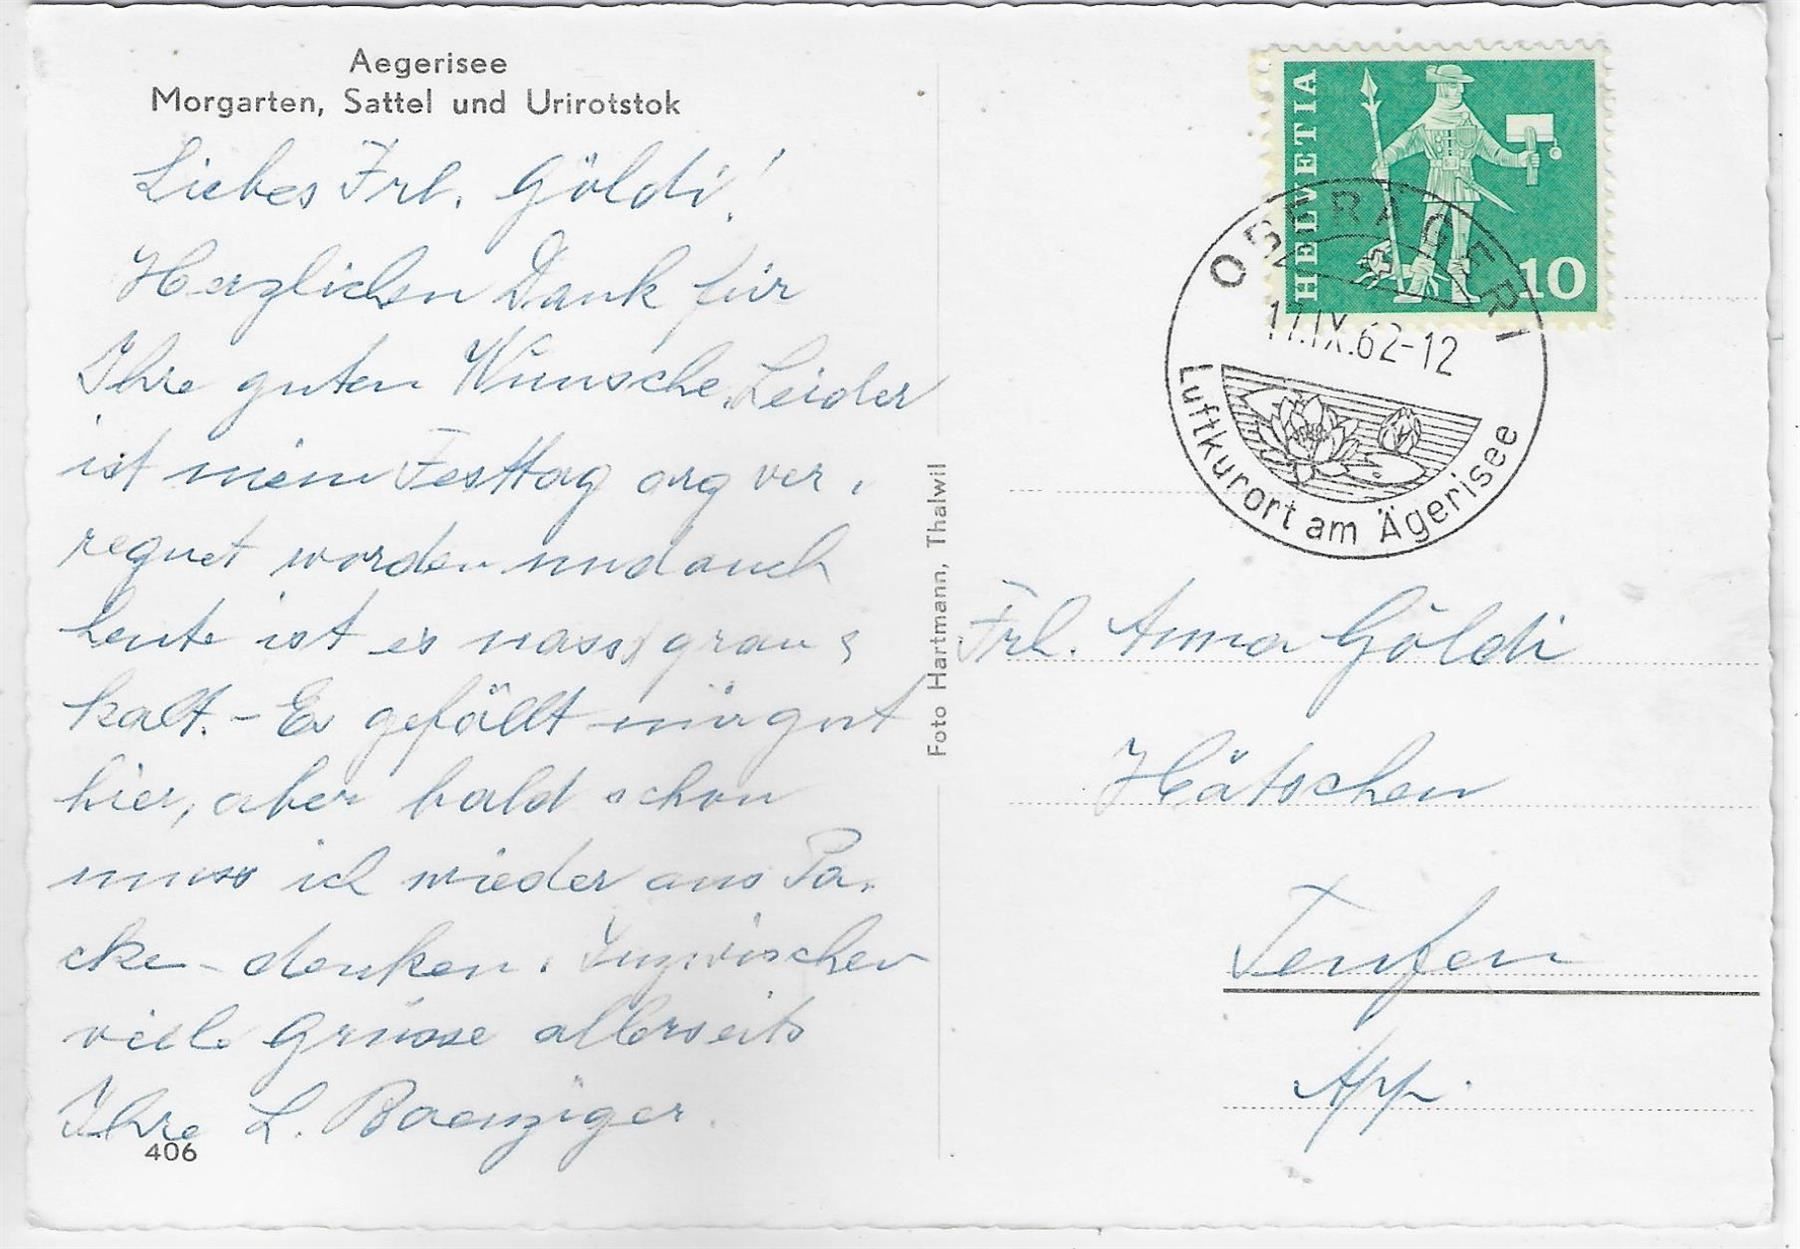 Aegerisee
Morgarten, Sattel und Urirotstok
Liebes Frl. Göldi!
Herzlichen Dank für
Ihre guten Wünsche. Leider
ist mein Festtag arg ver-
regnet worden und auch
heute ist es nass, grau &
kalt. - Es gefällt mir gut
hier, aber bald schon
muss ich wieder ans Pa-
cke- denken. Inzwischen
viele Grüsse allerseits
Ihre L. Baenziger.
406
Foto Hartmann, Thalwil
HELVETIA
10
OBERÄGERI
17.IX.62-12
Luftkurort am Ägerisee
Frl. Anna Göldi
Hätschen
Teufen
App.